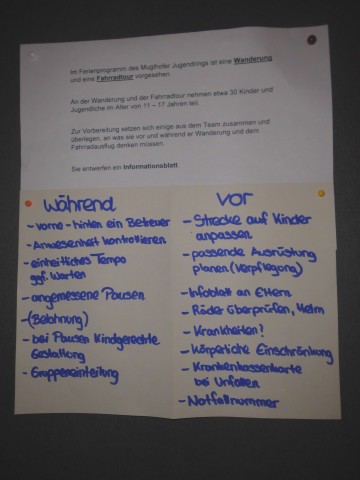 Im Ferienprogramm des Muglhofer Jugendrings ist eine Wanderung
und eine Fahrradtour vorgesehen.
An der Wanderung und der Fahrradtour nehmen etwa 30 Kinder und
Jugendliche im Alter von 11 – 17 Jahren teil.
Zur Vorbereitung setzen sich einige aus dem Team zusammen und
überlegen, an was sie vor und während er Wanderung und dem
Fahrradausflug denken müssen.
Sie entwerfen ein Informationsblatt.
Während
- vorne - hinten ein Betreuer
- Anwesenheit kontrollieren
- einheitliches Tempo
ggf. warten
- angemessene Pausen
- (Belohnung)
- bei Pausen Kindgerechte
Gestaltung
- Gruppeneinteilung
VOR
- Strecke auf Kinder
anpassen
- passende Ausrüstung
planen (Verpflegung)
- Infoblatt an Eltern
- Räder überprüfen, Helm
- Krankheiten?
- Körperliche Einschränkung
- Krankenkassenkarte
bei Unfällen
- Notfallnummer